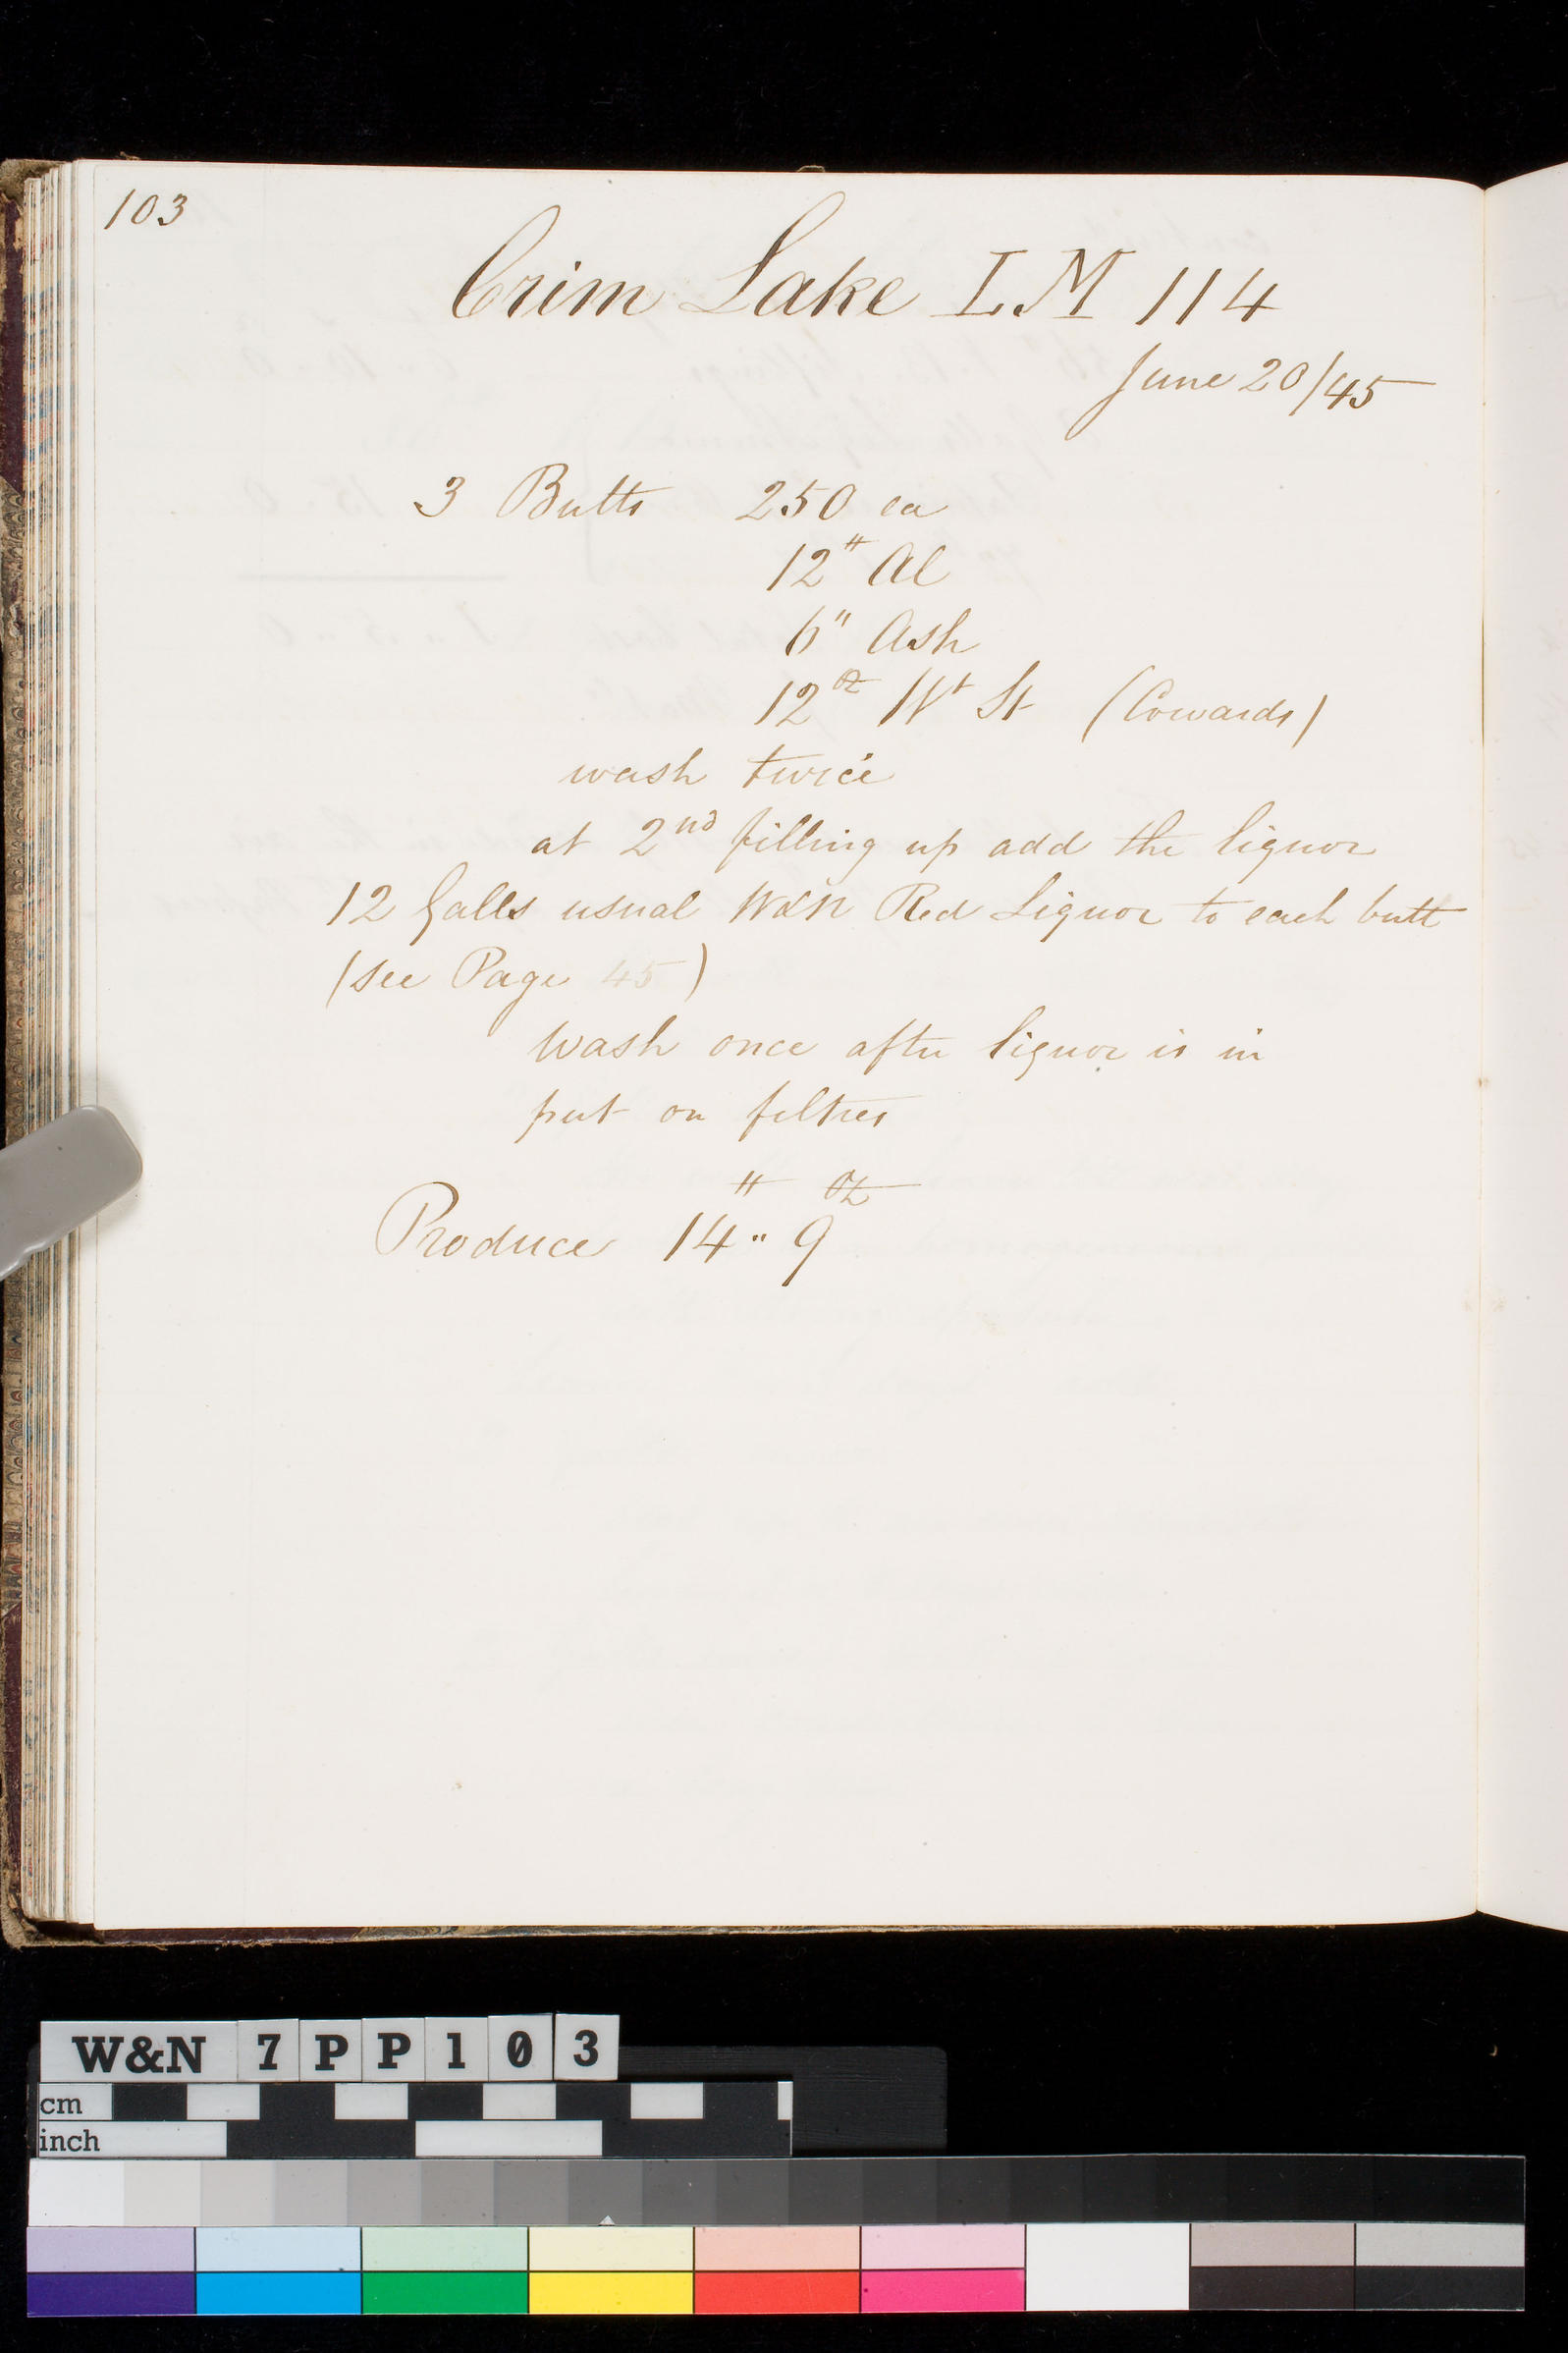 103
Crim Lake LM 114
June 20/45
3 Butts 250 ea
12" Al
6" Ash
12oz Wt St (Cowards)
wash twice
at 2nd filling up add the liquor
12 Galls usual W&N Red Liquor to each butt
(see Page 45)
Wash once after liquor is in
put on filtres
" oz
Produce 14 " 9
W&N 7PP103
cm
inch